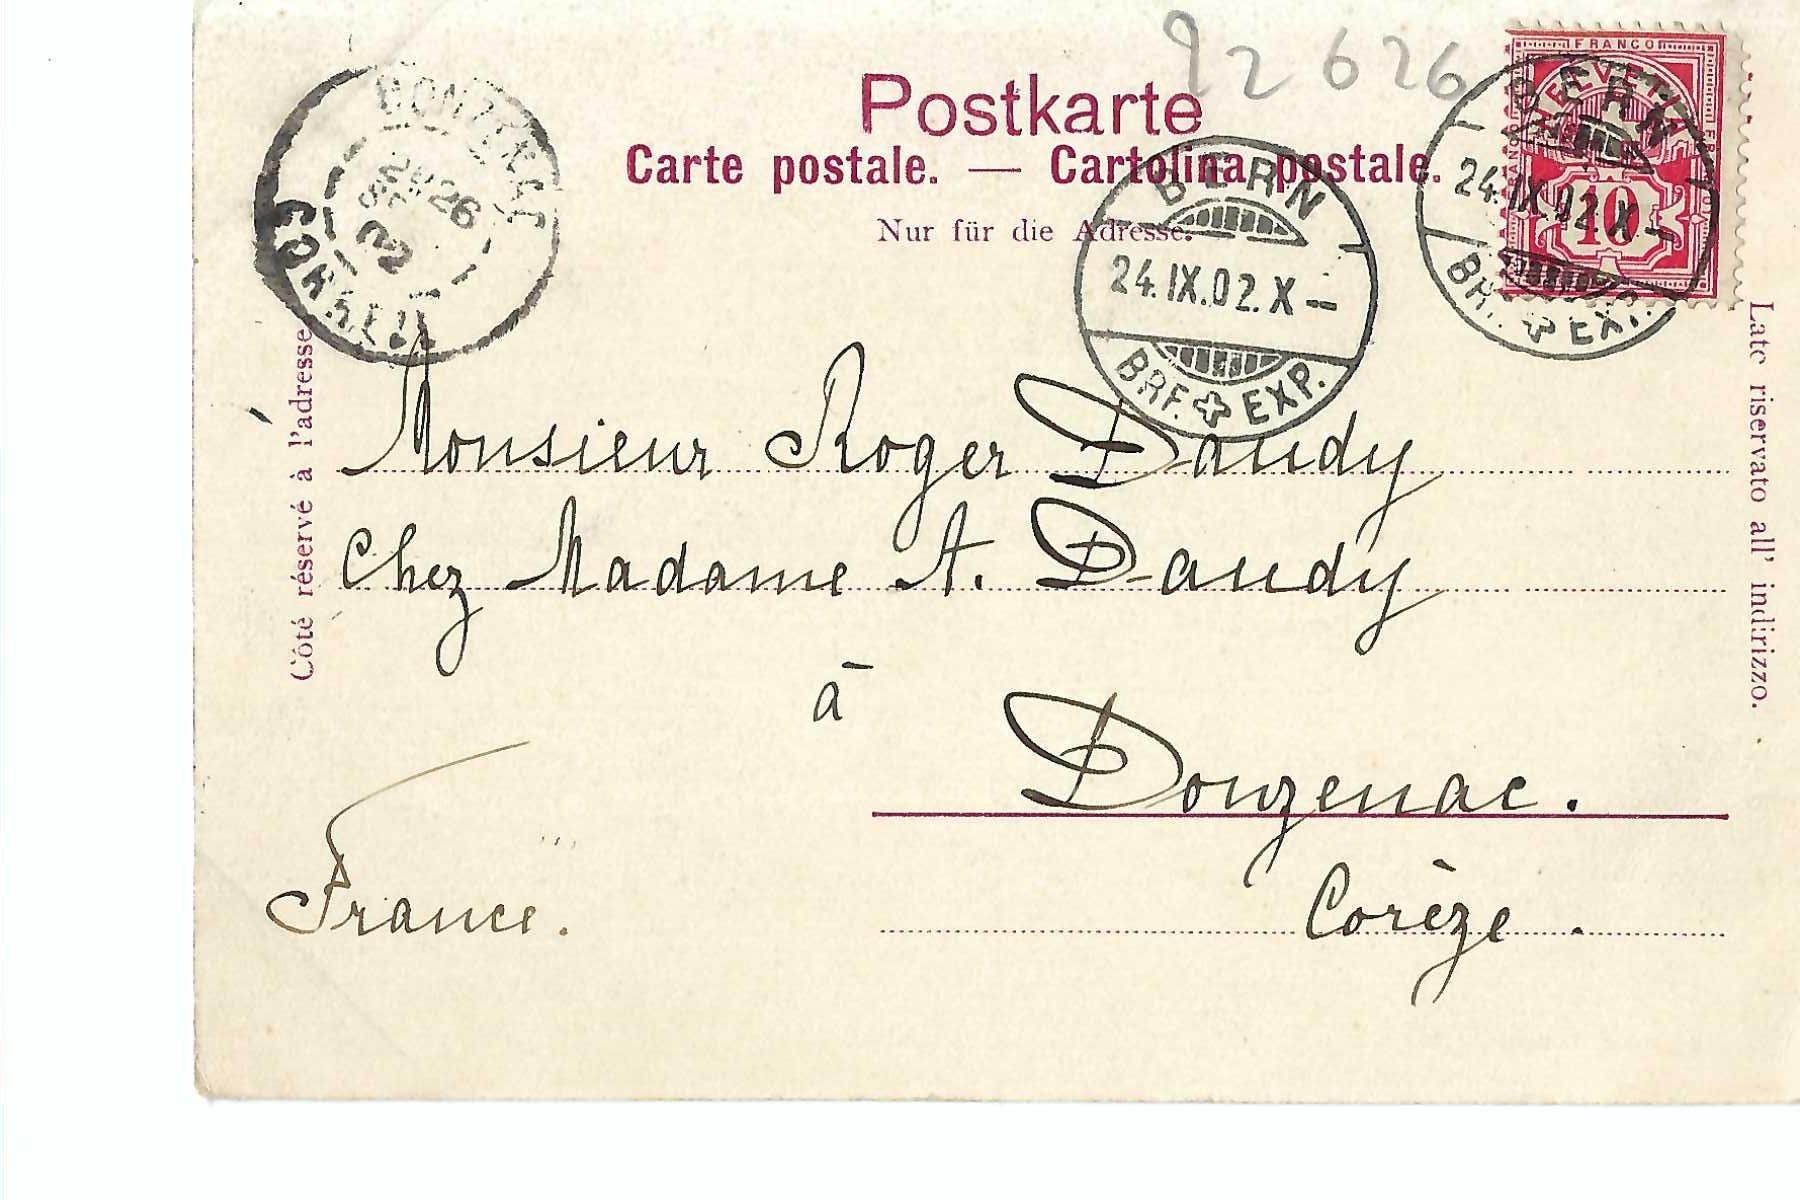 92626
Postkarte
Carte postale. — Cartolina postale.
Nur für die Adresse.
FRANCO
HELVETIA
10
BERN
24.IX.02.X—
BRF. EXP.
BERN
24.IX.02.X—
BRF. EXP.
26
CORREZE
Côté réservé à l'adresse
Lato riservato all' indirizzo.
Monsieur Roger Daudy
Chez Madame A. Daudy
à
Donzenac.
Corèze.
France.